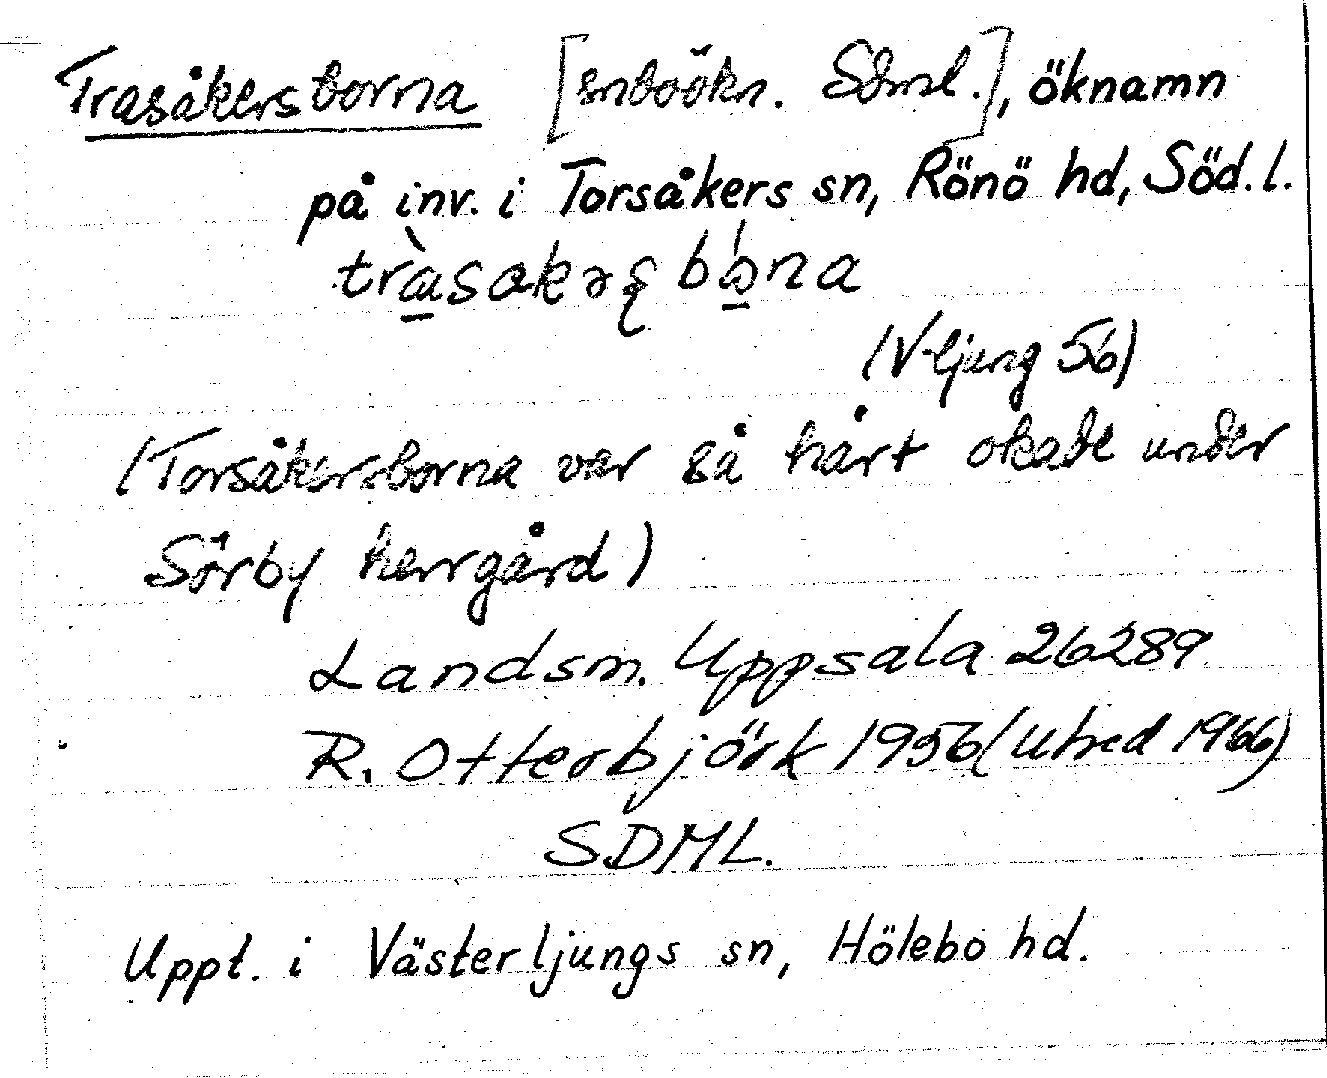 Trasåkersborna [snboökn. Sdml.], öknamn
på inv. i Torsåkers sn, Rönö hd, Söd.l.
(V-ljung 56)
(Torsåkersborna var så hårt okade under
Sörby herrgård)
Landsm. Uppsala 26289
R. Otterbjörk 1956 (utred 1966)
SDML.
Uppt. i Västerljungs sn, Hölebo hd.